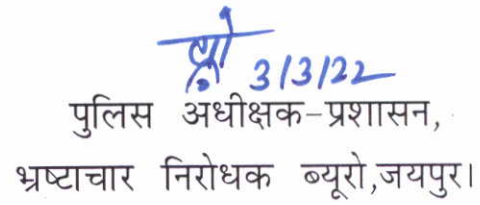 3/3/22
पुलिस अधीक्षक-प्रशासन,
भ्रष्टाचार निरोधक ब्यूरो,जयपुर।